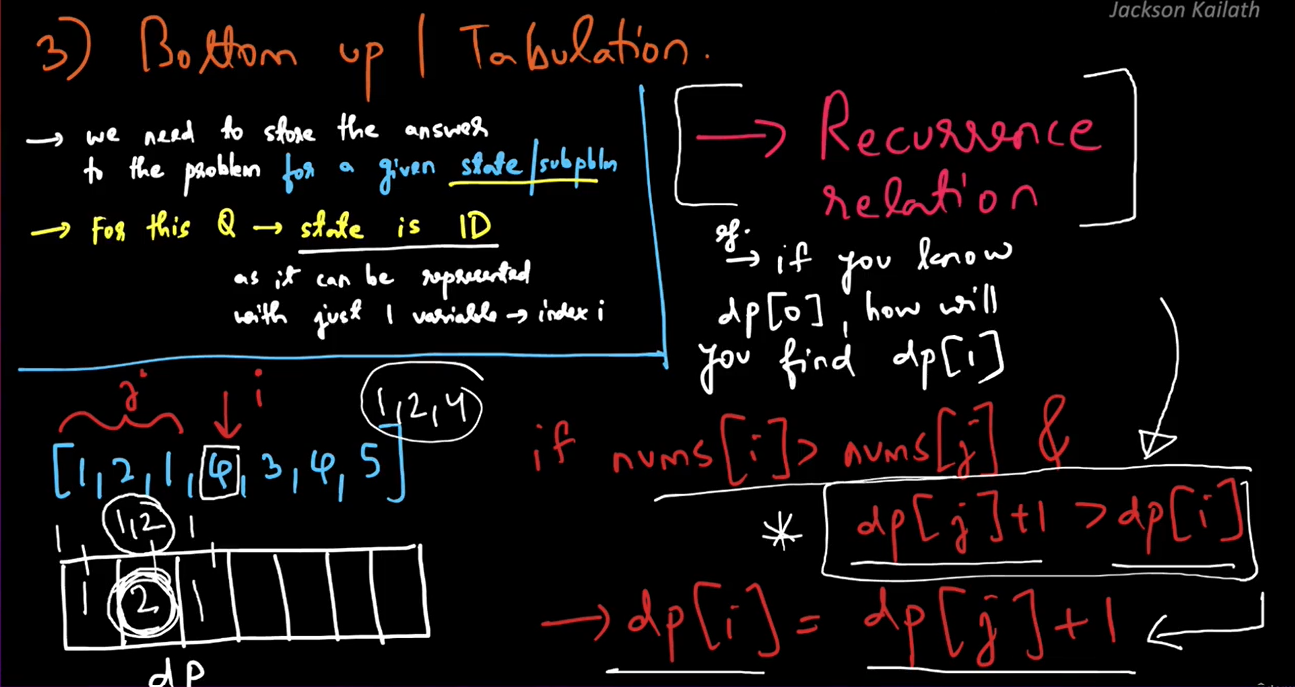 Jackson Kailath
3) Bottom up | Tabulation.
→ we need to store the answer
to the problem for a given state/subpblm
→ For this Q → state is 1D
as it can be represented
with just 1 variable → index i
→ Recurrence
relation
eg.
→ if you know
dp[0], how will
you find dp[1]
j i
1,2,4
[1,2,1,4,3,4,5]
1 1,2 1
1 2 1
dp
if nums[i] > nums[j] &
* dp[j]+1 > dp[i]
→ dp[i] = dp[j]+1